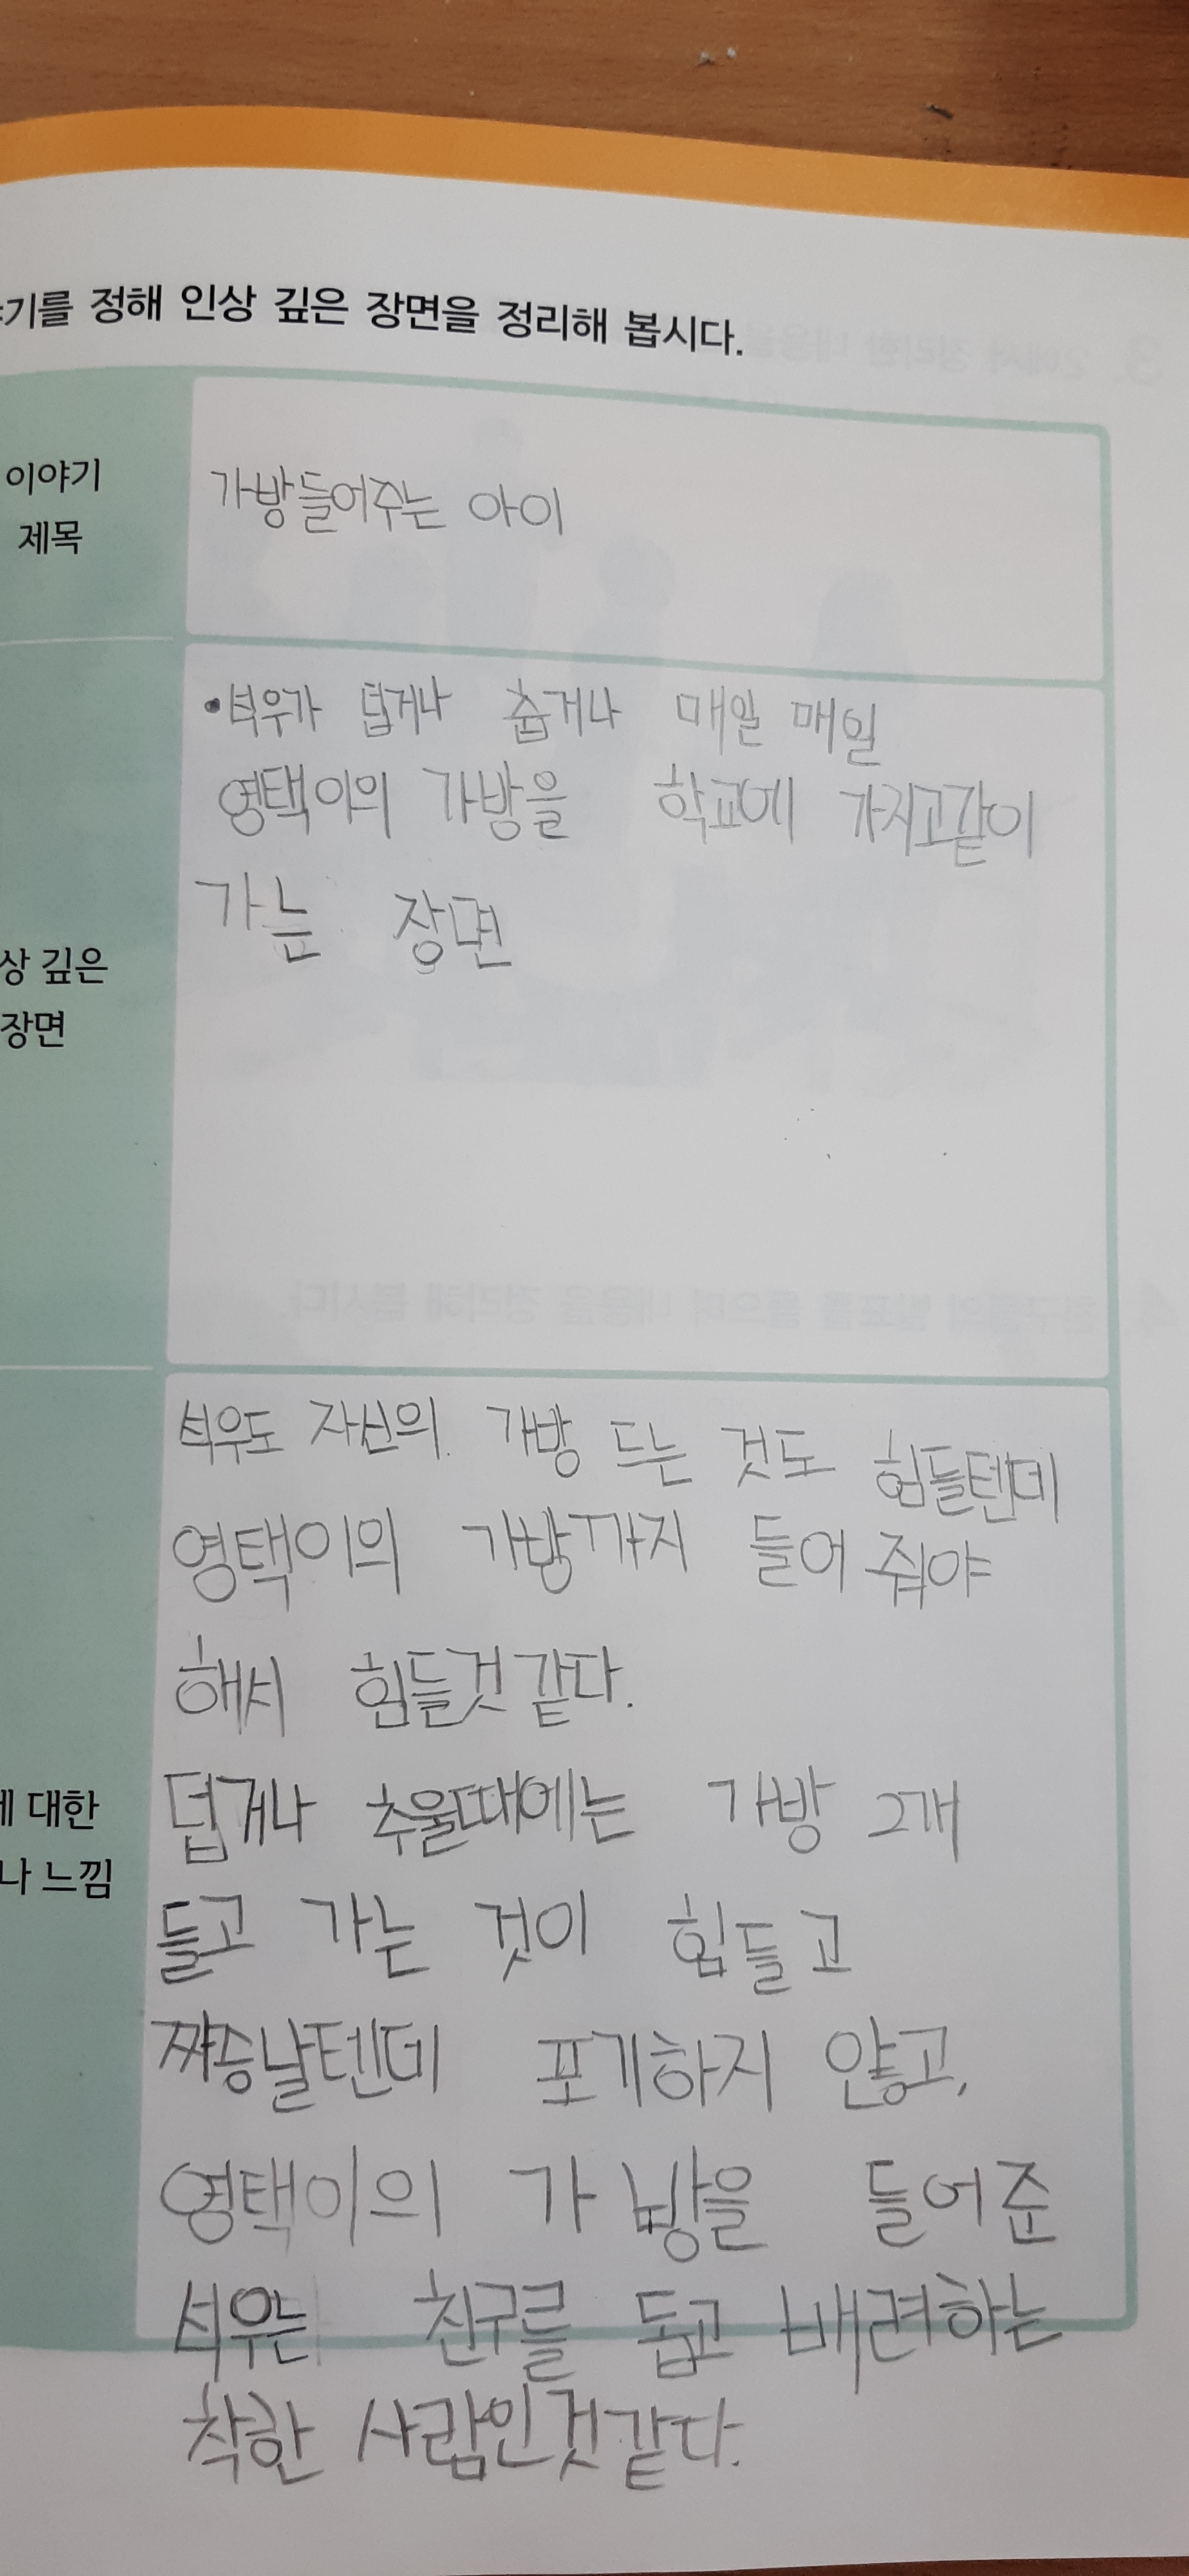 기를 정해 인상 깊은 장면을 정리해 봅시다.
이야기
제목
가방들어주는 아이
•석우가 덥거나 춥거나 매일 매일
영택이의 가방을 학교에 가지고같이
가는 장면
상 깊은
장면
석우도 자신의 가방 드는 것도 힘들텐데
영택이의 가방까지 들어 줘야
해서 힘들것 같다.
덥거나 추울때에는 가방 2개
들고 가는 것이 힘들고
짜승날텐데 포기하지 않고,
영택이의 가방을 들어준
석우는 친구를 돕고 배려하는
착한 사람인것같다.
에 대한
나 느낌